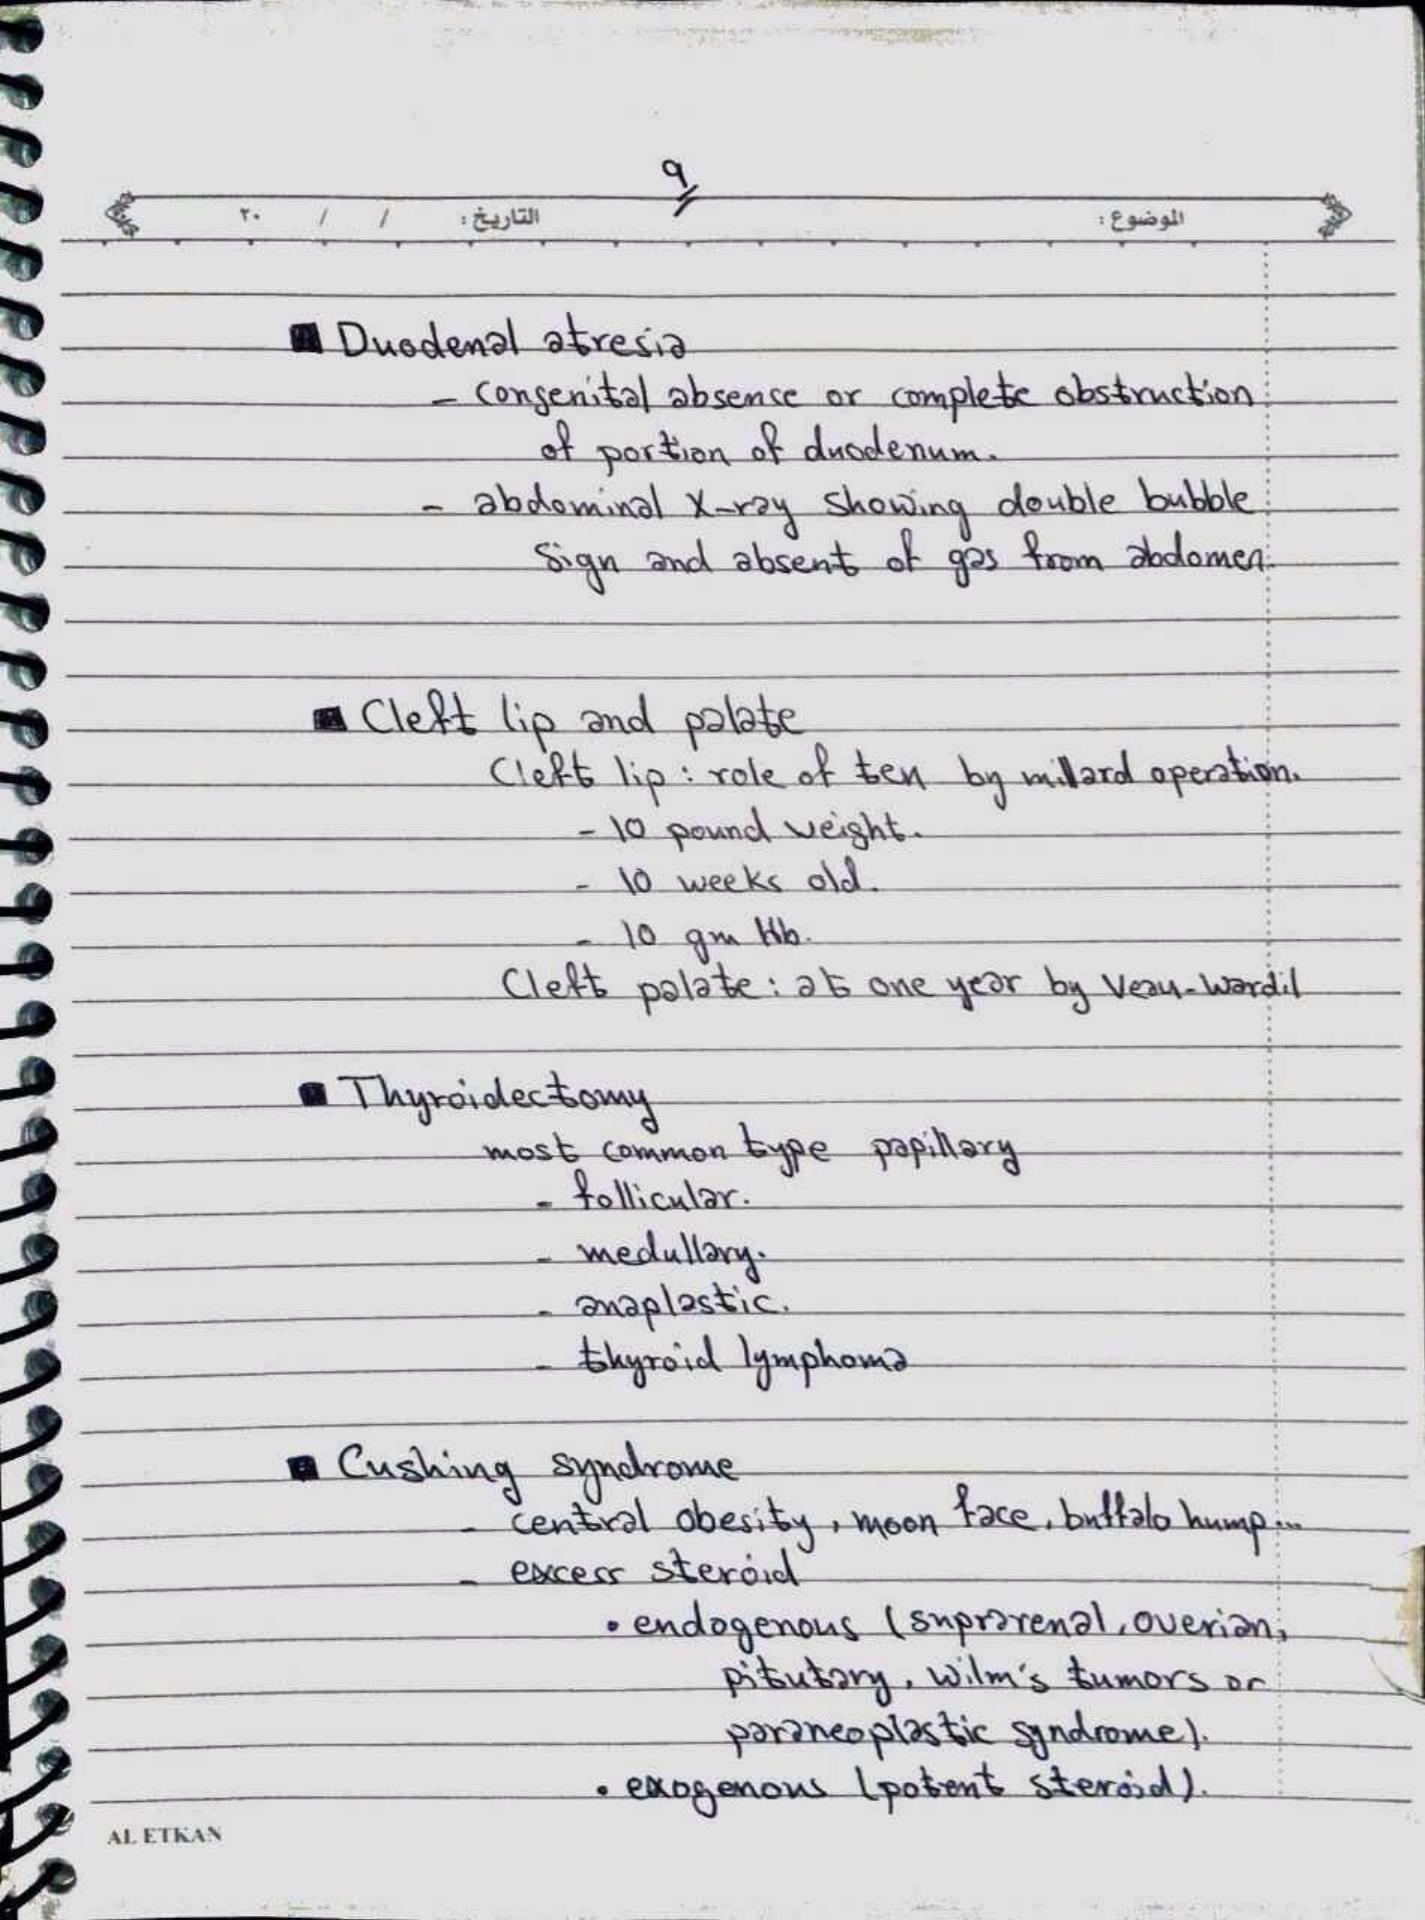 9
الموضوع: التاريخ: / / ٢٠
Duodenal atresia
- congenital absence or complete obstruction
of portion of duodenum.
- abdominal X-ray showing double bubble
sign and absent of gas from abdomen.
Cleft lip and palate
Cleft lip: role of ten by millard operation.
- 10 pound weight.
- 10 weeks old.
- 10 gm Hb.
Cleft palate: at one year by Veau-Wardil
Thyroidectomy
most common type papillary
- follicular.
- medullary.
- anaplastic.
- thyroid lymphoma
Cushing syndrome
- central obesity, moon face, buffalo hump...
- excess steroid
• endogenous (suprarenal, overian,
pitutary, wilm's tumors or
paraneoplastic syndrome).
• exogenous (potent steroid).
AL ETKAN